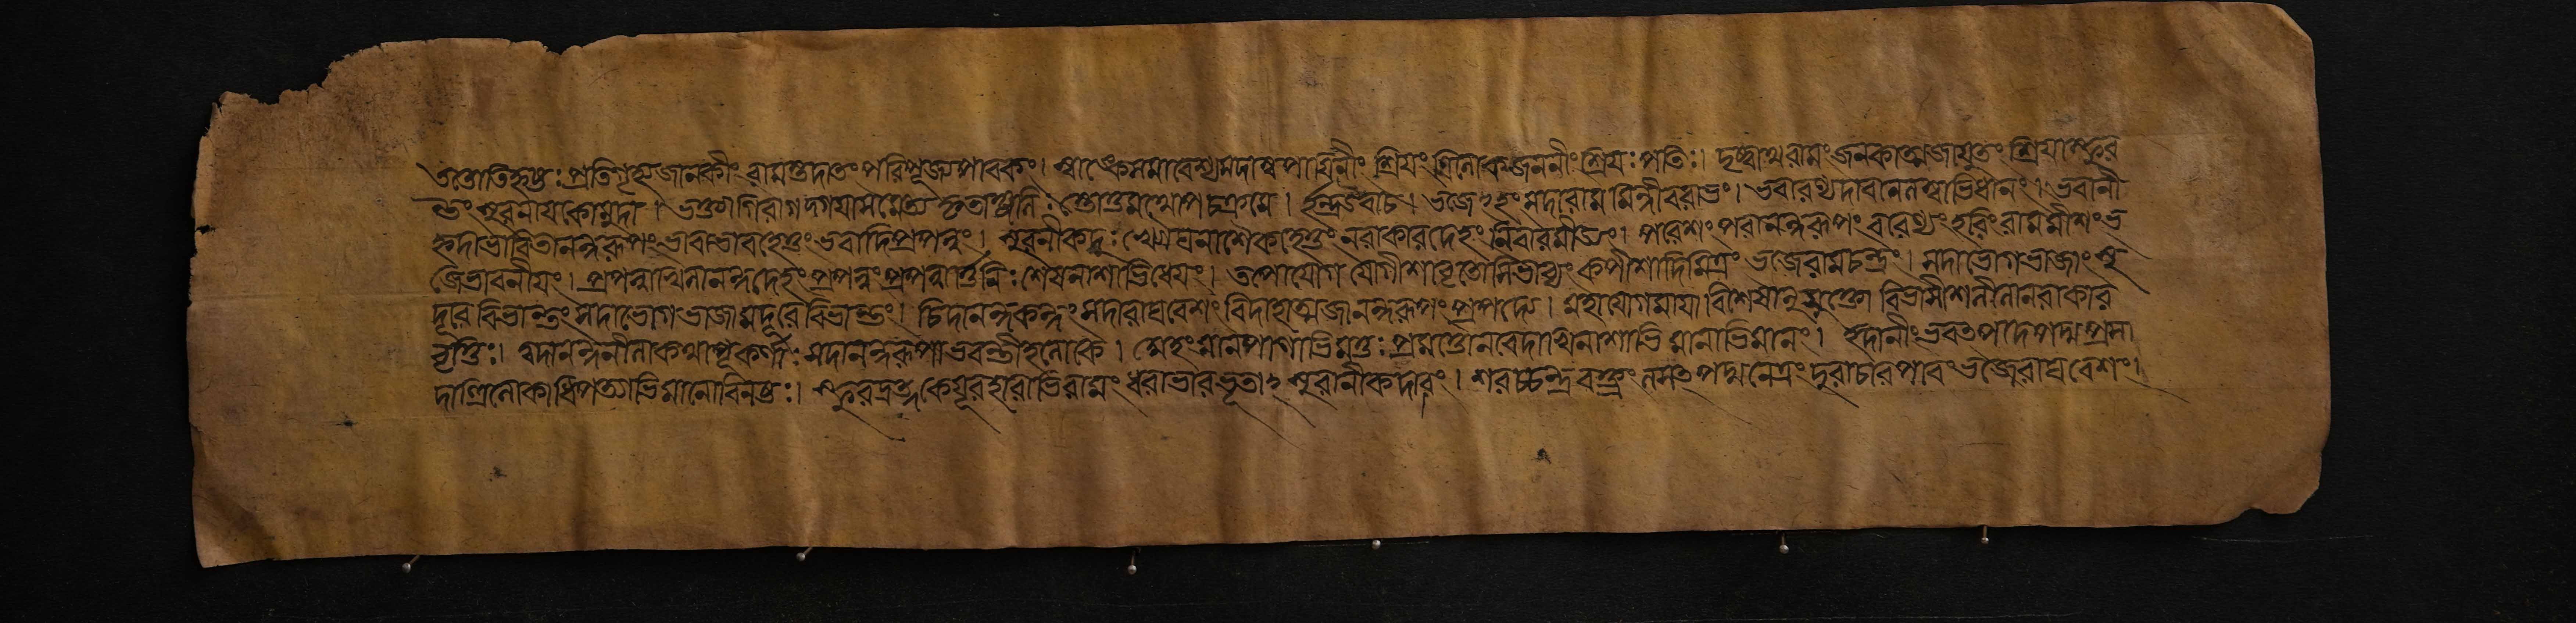 ততোতিহৃষ্টঃ প্রতিগৃহ্য জানকীং রামস্তদাতং পরিপূজ্য পাবকং। স্বাঙ্কে সমাবেশ্য সদানপায়িনীং শ্রিয়ং ত্রিলোক জননীং শ্রিয়ঃপতিঃ। দৃষ্ট্বাথ রামং জনকাত্মজাযুতং শ্রিয়াস্ফুর
ন্তং সুরনায়কোমুদা। ভক্ত্যাগিরাগদ্গদয়াসমেত্য কৃতাঞ্জলিঃ স্তোতুমথোপচক্রমে। ইন্দ্র উবাচ। ভজেঽহং সদারামমিন্দীবরাভং। ভবারণ্যদাবানলাভাভিধানং। ভবানী
হৃদাভাবিতানন্দরূপং ভবাভাবহেতুং ভবাদিপ্রপন্নং। সুরানীকদুঃখৌঘনাশৈকহেতুং নরাকারদেহং নিরাকারমীড্যং। পরেশং পরানন্দরূপং বরেণ্যং হরিং রামমীশং ভ
জে ভারনাশং। প্রপন্নাখিলানন্দদোহং প্রপন্নং প্রপন্নার্ত্তিনিঃশেষনাশাভিধেয়ং। তপোযোগ যোগীশভাবাভিভাব্যং কপীশাদিমিত্রং ভজে রামচন্দ্রং। সদাভোগভাজাং সু
দূরে বিভান্তং সদাযোগভাজামদূরে বিভান্তং। চিদানন্দকন্দং সদারাঘবেশং বিদেহাত্মজানন্দরূপং প্রপদ্যে। মহাযোগমায়া বিশেষানুযুক্তো বিভাসীশ লীলানরাকার
বৃত্তিঃ। ত্বদানন্দলীলাকথাপূর্ণকর্ণাঃ সদানন্দরূপা ভবন্তীহ লোকে। অহং মানপানাভিমত্তঃ প্রমত্তো নবেদাখিলেশাভিমানাভিমানং। ইদানীং ভবৎপাদপদ্মপ্রসা
দাৎত্রিলোকাধিপত্যাভিমানোবিনষ্টঃ। স্ফুরদ্রত্নকেয়ূরহারাভিরামং ধরাভারভূতাঽ সুরানীকদাবং। শরচ্চন্দ্রবক্ত্রং লসৎপদ্মনেত্রং দুরাচারপাবং ভজে রাঘবেশং।